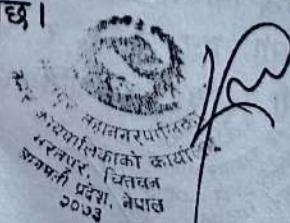 छ।
महानगरपालिका
नगर कार्यपालिकाको कार्यालय
भरतपुर, चितवन
बागमती प्रदेश, नेपाल
२०७३